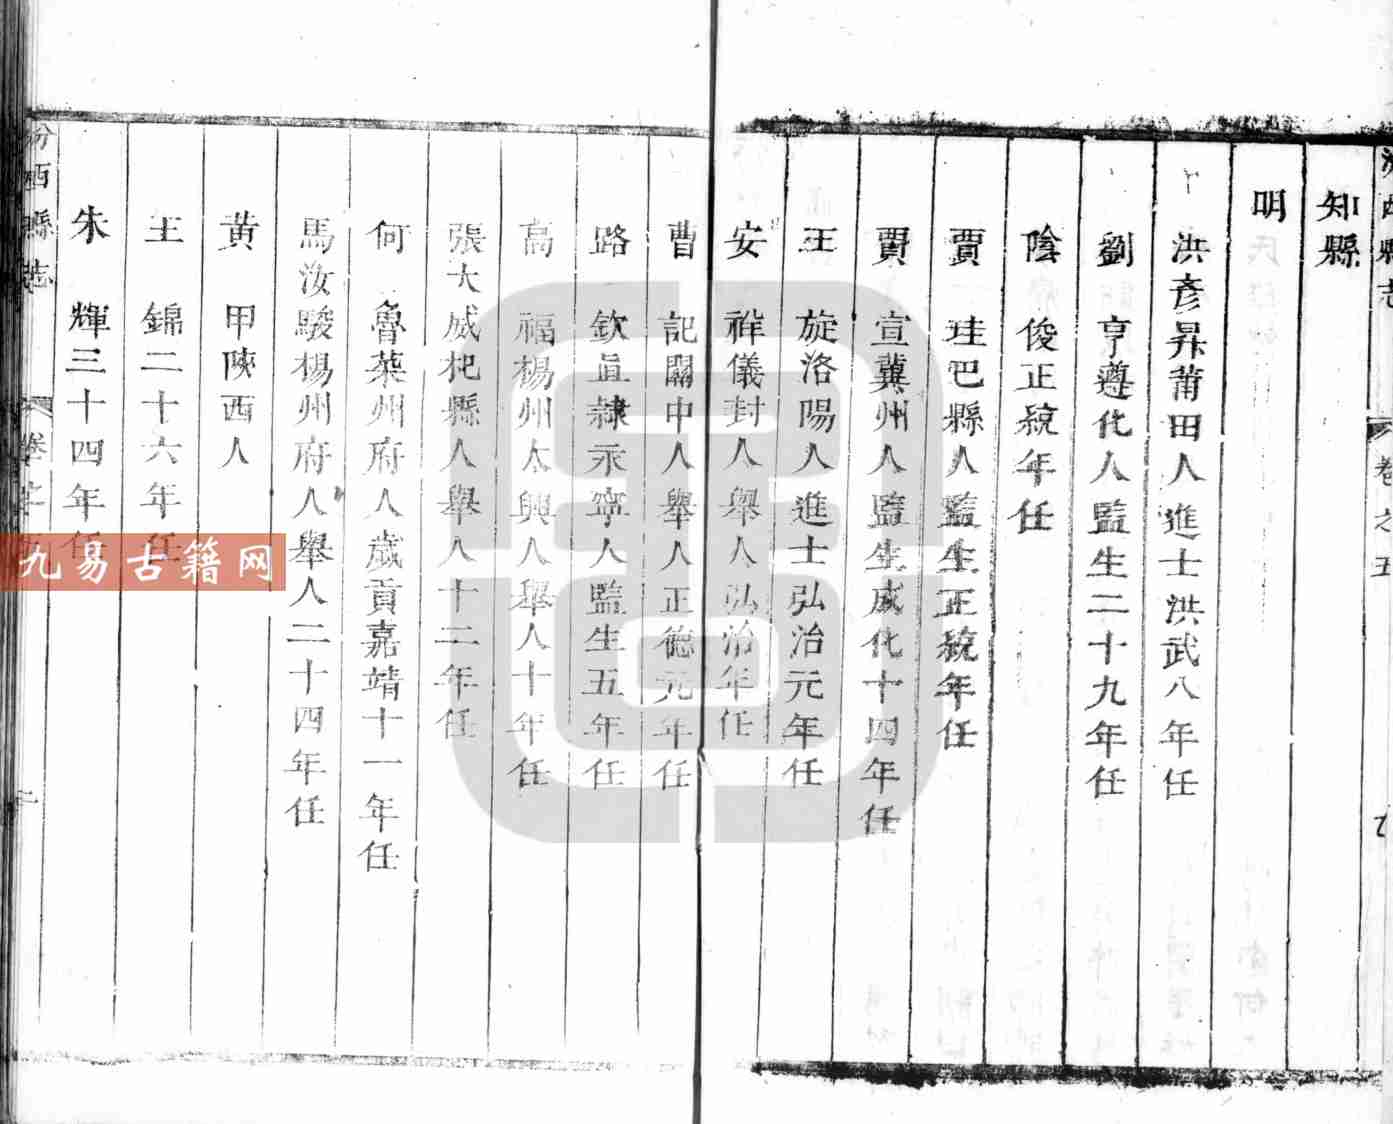 汾西縣志
卷之五
知縣
明
洪彥昇莆田人進士洪武八年任
劉 亨遵化人監生二十九年任
陰 俊正統年任
賈 珪巴縣人監生正統年任
賈 宣冀州人監生成化十四年任
王 旋洛陽人進士弘治元年任
安 祥儀封人舉人弘治年任
曹 記關中人舉人正德元年任
路 欽眞隸永寧人監生五年任
高 福楊州太興人舉人十年任
張大威杞縣人舉人十二年任
何 魯萊州府人歲貢嘉靖十一年任
馬汝駿楊州府人舉人二十四年任
黃 甲陝西人
王 錦二十六年任
朱 輝三十四年任
汾西縣志
卷之
九易古籍网